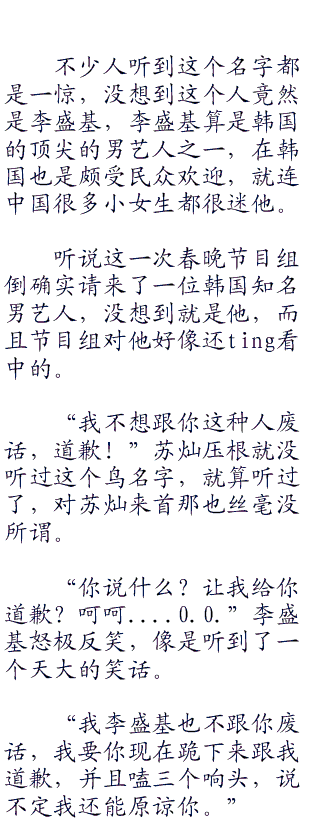 不少人听到这个名字都
是一惊，没想到这个人竟然
是李盛基，李盛基算是韩国
的顶尖的男艺人之一，在韩
国也是颇受民众欢迎，就连
中国很多小女生都很迷他。
听说这一次春晚节目组
倒确实请来了一位韩国知名
男艺人，没想到就是他，而
且节目组对他好像还ting看
中的。
“我不想跟你这种人废
话，道歉！”苏灿压根就没
听过这个鸟名字，就算听过
了，对苏灿来首那也丝毫没
所谓。
“你说什么？让我给你
道歉？呵呵....0.0.”李盛
基怒极反笑，像是听到了一
个天大的笑话。
“我李盛基也不跟你废
话，我要你现在跪下来跟我
道歉，并且嗑三个响头，说
不定我还能原谅你。”